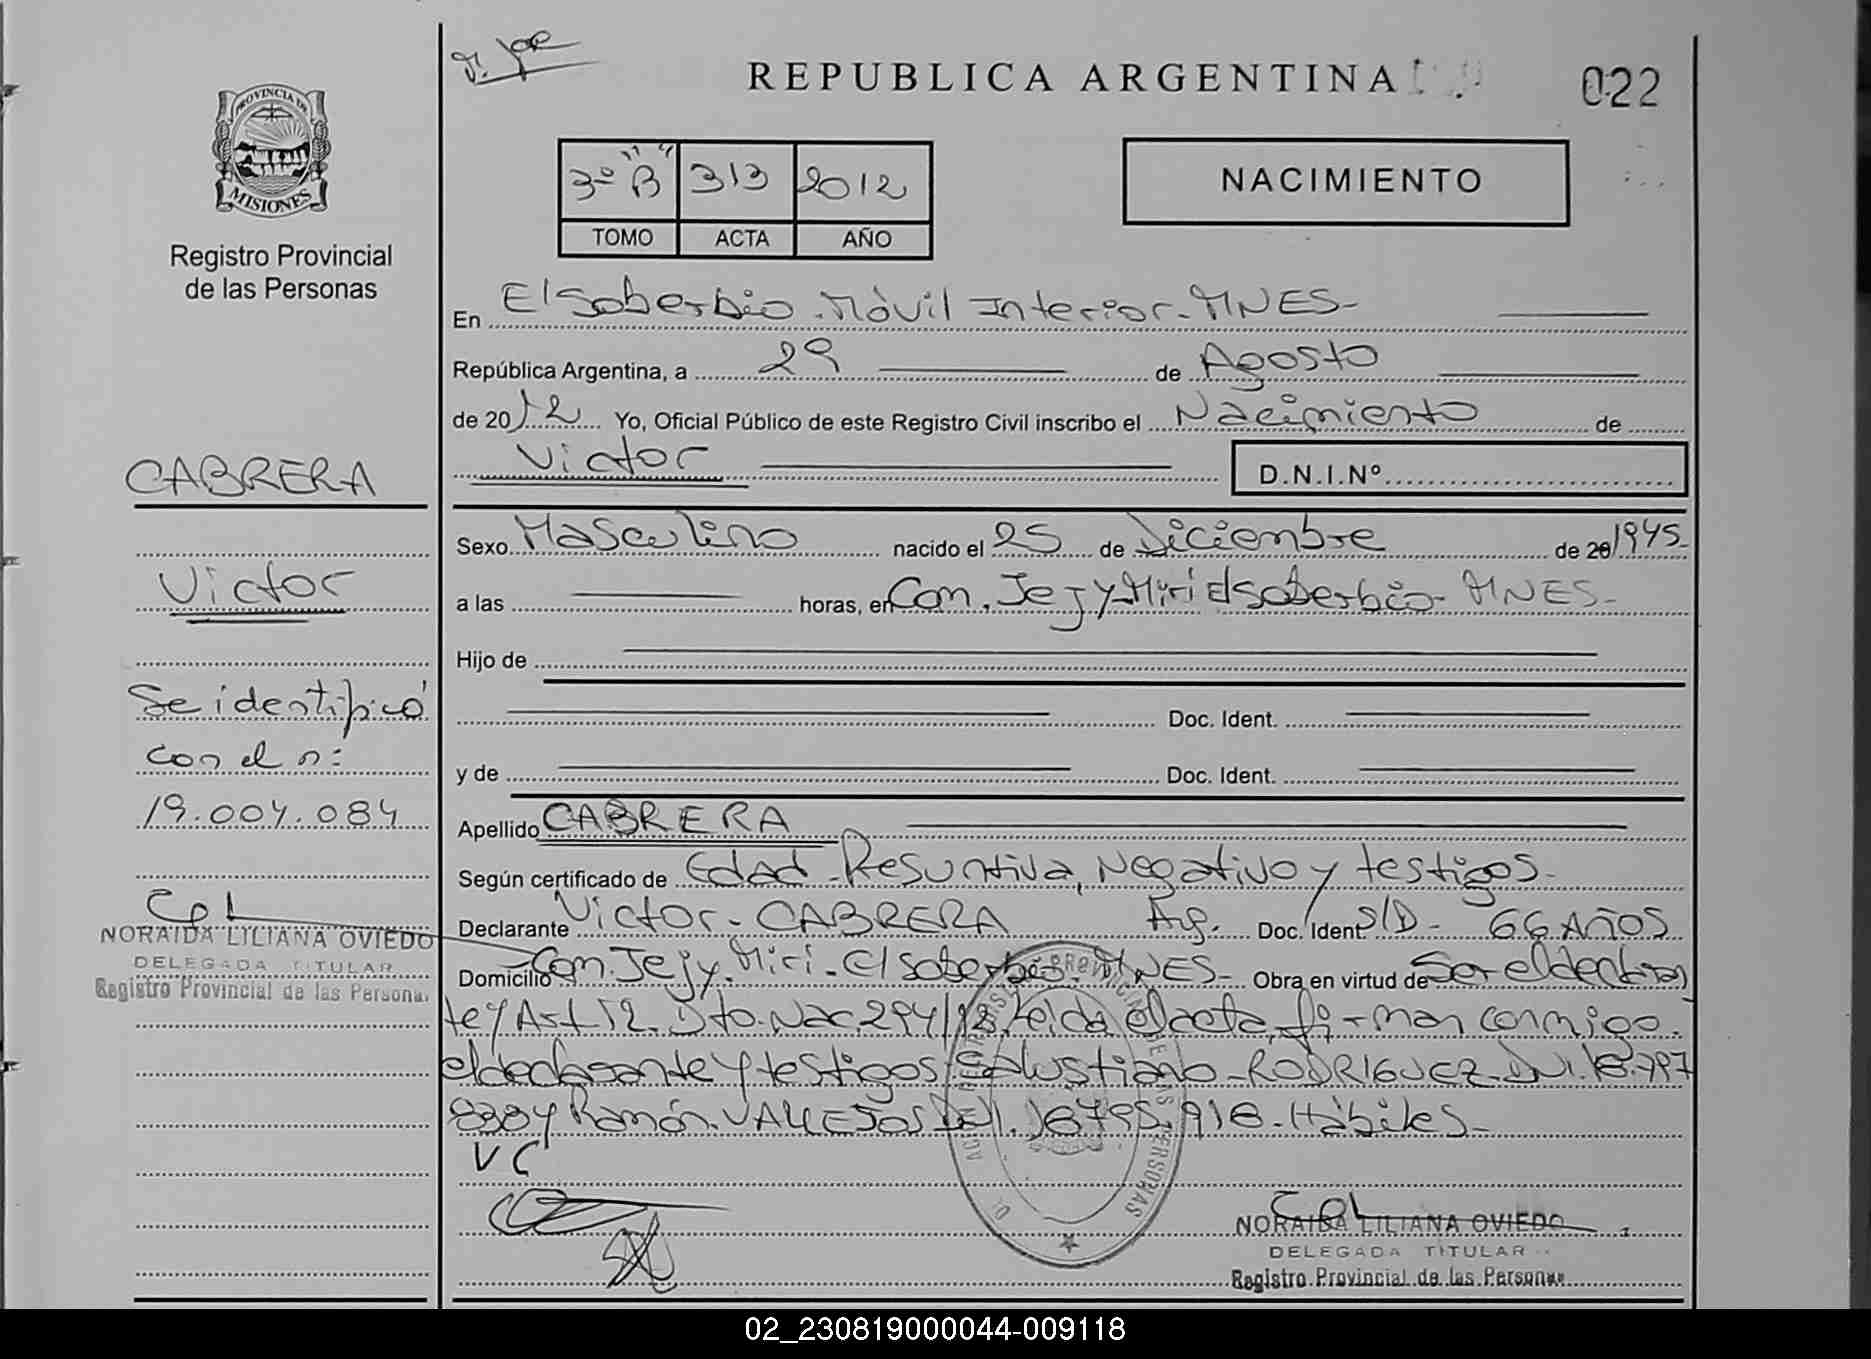 REPUBLICA ARGENTINA
022
PROVINCIA DE
MISIONES
Registro Provincial
de las Personas
3º "B" 313 2012
TOMO ACTA AÑO
NACIMIENTO
En El Soberbio. Móvil Interior. MNES-
República Argentina, a 29 de Agosto
de 2012 Yo, Oficial Público de este Registro Civil inscribo el Nacimiento de
Victor
D.N.I.Nº
CABRERA
Victor
Se identificó
con el n:
19.004.084
NORAIDA LILIANA OVIEDO
DELEGADA TITULAR
Registro Provincial de las Personas
Sexo Masculino nacido el 25 de Diciembre de 20 1945
a las horas, en Com. Jejy Miri El Soberbio- MNES-
Hijo de
Doc. Ident.
y de Doc. Ident.
Apellido CABRERA
Según certificado de Edad Presuntiva, Negativo y testigos-
Declarante Victor- CABRERA Arg. Doc. Ident S/D- 66 AÑOS
Domicilio Com. Jejy Miri- El Soberbio MNES- Obra en virtud de Ser el declaran
te y Art 12. Dto. Nac 294/12, leída el acta, firman conmigo
el declarante y testigos Salustiano- RODRIGUEZ- DNI. 18.797
838 y Ramón. VALLEJOS DNI. 18795.918- Hábiles-
VC
NORAIDA LILIANA OVIEDO
DELEGADA TITULAR
Registro Provincial de las Personas
02_230819000044-009118